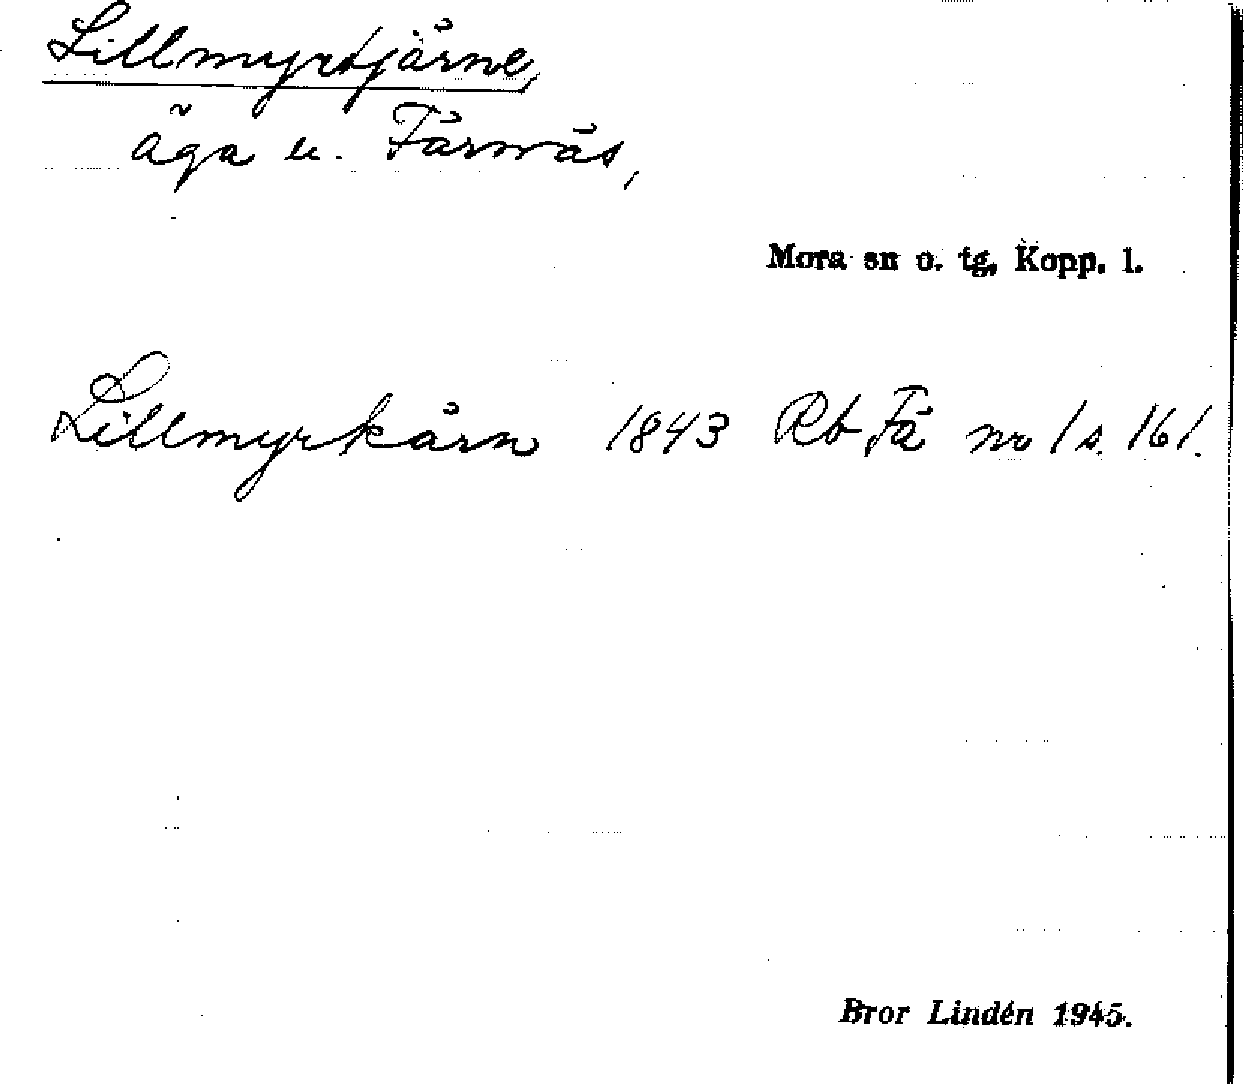 Lillmyrtjärne,
äga u. Färnäs,
Mora sn o. tg, Kopp. l.
Lillmyrkärn 1843 Rb Fä no 1 s. 161.
Bror Lindén 1945.